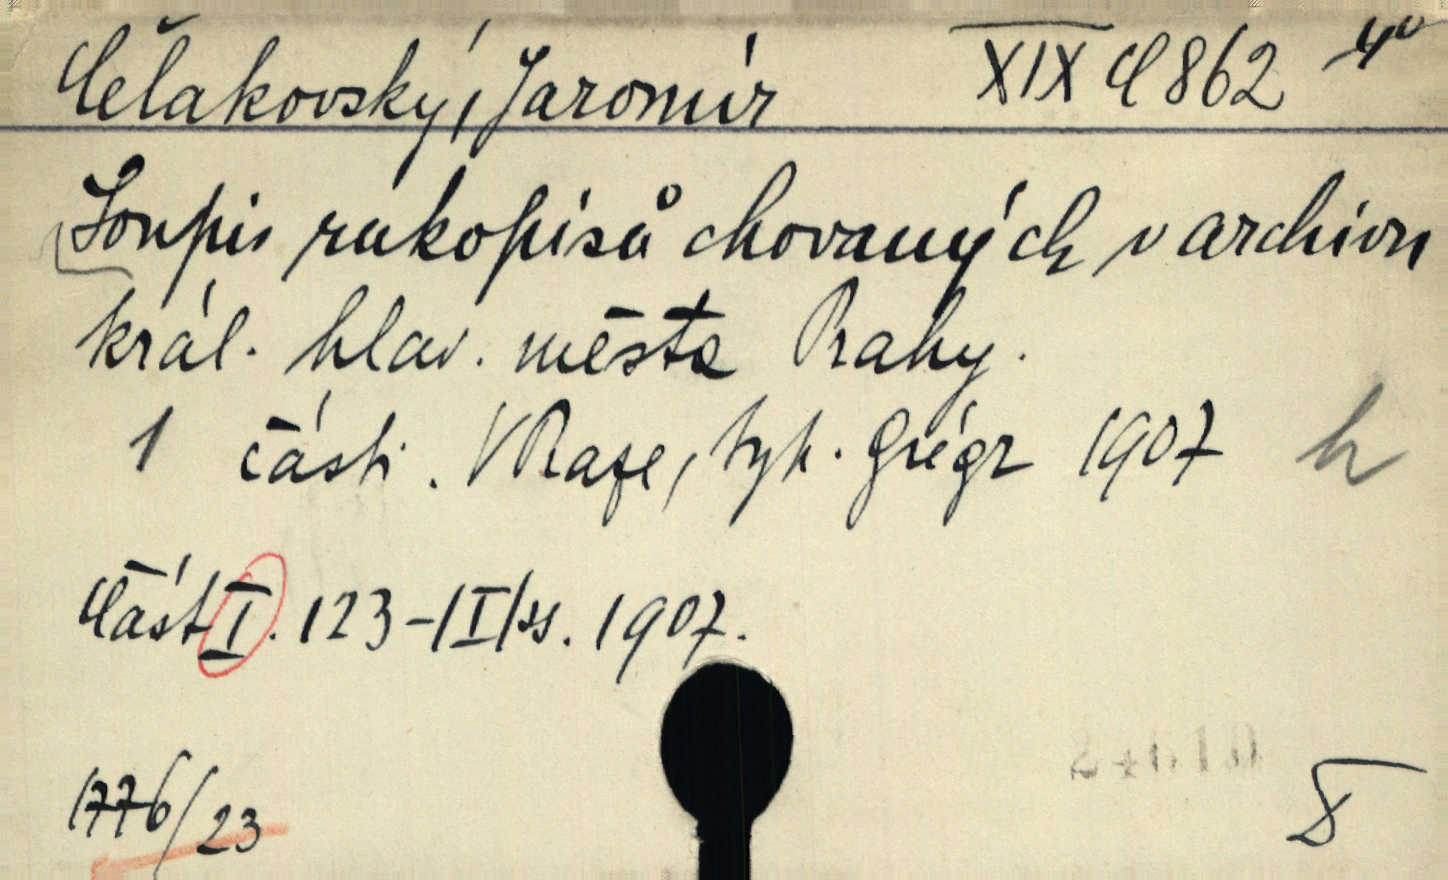 Čelakovský, Jaromír XIX C 862 4°
Soupis rukopisů chovaných v archivu
král. hlav. města Prahy.
1 části. V Praze, typ. Grégr 1907 h
Část I. 123-|I|ss. 1907.
1776/23